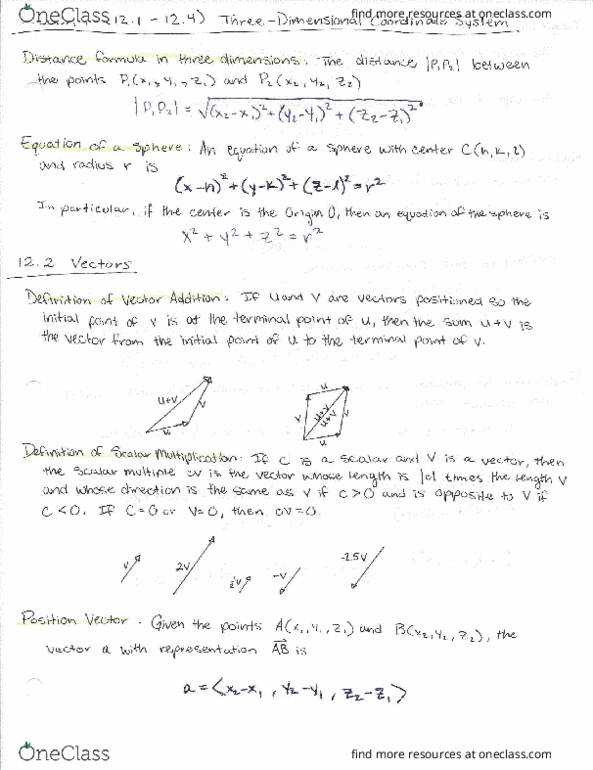 OneClass
find more resources at oneclass.com
12.1 - 12.4) Three-Dimensional Coordinate System
Distance formula in three dimensions: The distance |P₁P₂| between
the points P₁(x₁, y₁, z₁) and P₂(x₂, y₂, z₂)
|P₁P₂| = √(x₂-x₁)² + (y₂-y₁)² + (z₂-z₁)²
Equation of a sphere: An equation of a sphere with center C(h,k,l)
and radius r is
(x-h)² + (y-k)² + (z-l)² = r²
In particular, if the center is the Origin O, then an equation of the sphere is
x² + y² + z² = r²
12.2 Vectors
Definition of Vector Addition: If u and v are vectors positioned so the
initial point of v is at the terminal point of u, then the sum u+v is
the vector from the initial point of u to the terminal point of v.
u+v
v
u
u
v
u+v
u+v
v
u
Definition of Scalar Multiplication: If c is a scalar and v is a vector, then
the scalar multiple cv is the vector whose length is |c| times the length v
and whose direction is the same as v if c>0 and is opposite to v if
c<0. If c=0 or v=0, then cv=0.
v
2v
½v
-v
-1.5v
Position Vector. Given the points A(x₁, y₁, z₁) and B(x₂, y₂, z₂), the
vector a with representation A⃗B⃗ is
a = ⟨x₂-x₁, y₂-y₁, z₂-z₁⟩
OneClass
find more resources at oneclass.com